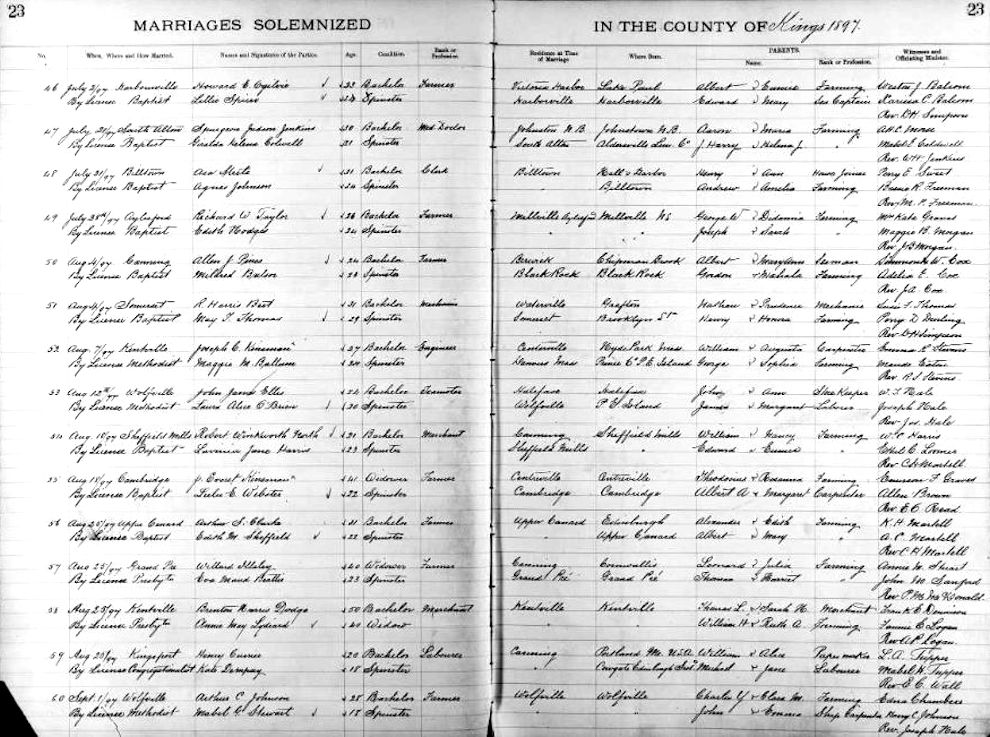 23
MARRIAGES SOLEMNIZED
IN THE COUNTY OF Kings 1897.
23
No. When, Where and How Married. Names and Signatures of the Parties. Age. Condition. Rank or Profession. Residence at Time of Marriage Where Born. PARENTS. Name. Rank or Profession. Witnesses and Officiating Minister.
46 July 3/97 Harbourville Howard E. Ogilvie 23 Bachelor Farmer Victoria Harbor Lake Paul Albert & Eunice Farming Weston J. Balsom
By License Baptist Lillie Spicer Spinster Harborville Harborville Edward & Mary Sea Captain Balsom
Rev. D H Simpson
47 July 21/97 South Alton Spurgeon Judson Jenkins 30 Bachelor Med. Doctor Johnston N.B. Johnstown N.B. Aaron & Maria Farming Morse
By License Baptist Helena Colwell 21 Spinster South Alton J. Harry & Helena J. " Mabel Caldwell
Rev. W H Jenkins
48 July 21/97 Billtown Asa Steele 21 Bachelor Clerk Billtown Hall's Harbor Henry & Ann Perry E. Sweet
By License Baptist Agnes Johnson 24 Spinster " Billtown Andrew & Amelia Farming R. Freeman
Rev. M. P. Freeman
49 July 28th/97 Aylesford Richard W. Taylor 26 Bachelor Farmer Melville N.S. George W. & Farming Mrs Kate Graves
By License Baptist Edith Hodges 24 Spinster " " Joseph & Sarah " Maggie B. Morgan
Rev. J B Morgan
50 Aug 4/97 Canning Allen J. 24 Bachelor Farmer Berwick Chipman Brook Albert & Mary Ann Seaman W. Cox
By License Baptist Mildred Spinster Black Rock Black Rock Gordon & Farming Adelia E. Cox
Rev. J A. Cox
51 Aug 4/97 Somerset R. Harris Best 31 Bachelor Mechanic Waterville Grafton Nathan & Prudence Mechanic Thomas
By License Baptist May T. Thomas 29 Spinster Somerset Brooklyn St. Henry & Honora Farming Perry D.
Rev. D H Simpson
52 Aug. 7/97 Kentville Joseph C. Kinsman 27 Bachelor Engineer Centerville Hyde Park Mass William & Augusta Carpenter Emma Stevens
By License Methodist Maggie M. Spinster Mass P.E. Island George & Sophia Farming Maude Eaton
Rev. R. S. Stevens
53 Aug 12th/97 Wolfville John James Ellis 24 Bachelor Teamster Halifax Halifax John & Ann W. T. Hale
By License Methodist Laura Alice O'Brien 20 Spinster Wolfville P E Island James & Margaret Labourer Joseph Hale
Rev. Jos. Hale
54 Aug. 18/97 Sheffield Mills Robert Winkworth North 31 Bachelor Merchant Canning Sheffield Mills William & Nancy Farming W. C. Harris
By License Baptist Lavinia Jane Harris 23 Spinster Sheffield Mills " Edward & Eunice " Ethel C. Loomer
Rev. C H Martell
55 Aug 18/97 Cambridge J. Everet Kinsman 41 Widower Farmer Centreville Centreville Theodorus & Rosanna Farming Emerson F. Graves
By License Baptist E. Webster 22 Spinster Cambridge Cambridge Albert A & Margaret Carpenter Allen Brown
Rev. E O. Read
56 Aug 25/97 Upper Canard Arthur S. Clarke 31 Bachelor Farmer Upper Canard Edinburgh Alexander & Edith Farming K. H. Martell
By License Baptist Edith M. Sheffield 22 Spinster " Upper Canard Albert & Mary " A. C. Martell
Rev C H Martell
57 Aug 25/97 Grand Pre Willard Illsley 40 Widower Farmer Canning Cornwallis Leonard & Julia Farming Annie M. Stuart
By License Presbyt Eva Maud 23 Spinster Grand Pré Grand Pré Thomas & Harriet John M. Sanford
Rev. P. M. McDonald
58 Aug 25/97 Kentville Brenton Harris Dodge 50 Bachelor Merchant Kentville Kentville Thomas L. & Sarah N. Merchant Frank E. Dennison
By License Presbyt Annie May Lydiard 40 Widow " " William H & Ruth A. Farming Fannie E. Logan
Rev. A P. Logan.
59 Aug 28/97 Kingsport Henry Currie 20 Bachelor Labourer Canning Portland Me. U.S.A. William & Alice Paper maker L. A. Tupper
By License Congregationalist Kate Dempsey 18 Spinster " Michael & Jane Labourer Mabel H. Tupper
Rev E. C. Wall
60 Sept. 1/97 Wolfville Arthur C. Johnson 25 Bachelor Farmer Wolfville Wolfville Charles Y & Clara M. Farming Edna Chambers
By License Methodist Mabel G Stewart 18 Spinster " " John & Emma Ship Carpenter Harry C. Johnson
Rev. Joseph Hale